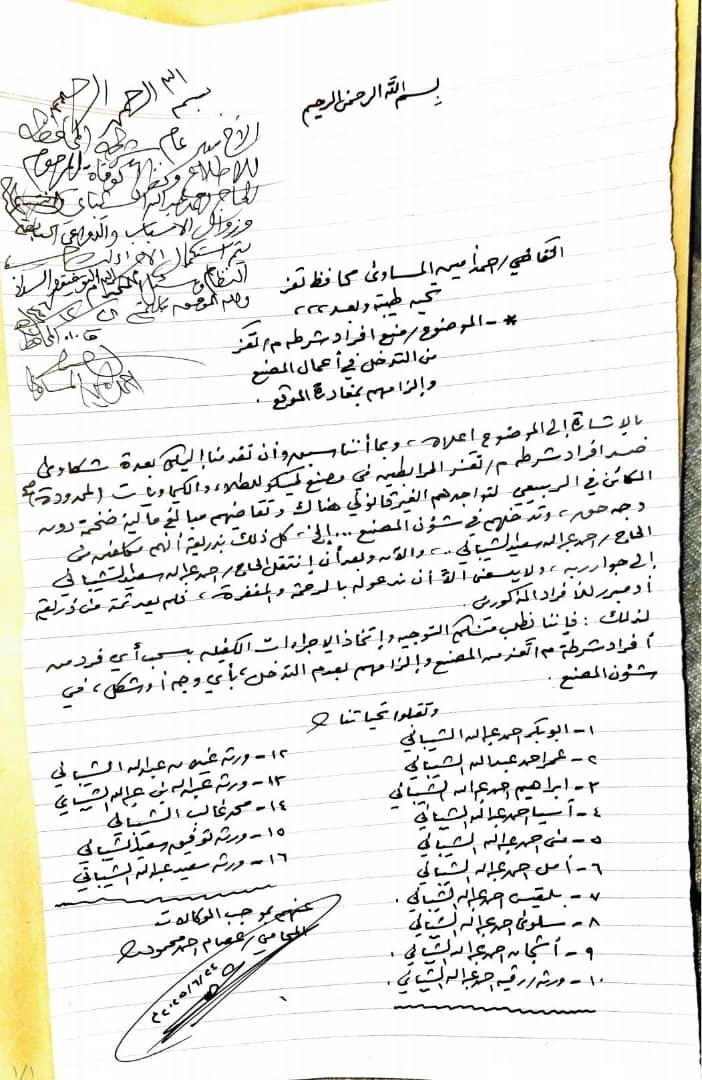 بسم الله الرحمن الرحيم
بسم الله الرحمن الرحيم
الأخ مدير عام شرطة المحافظة
للاطلاع ونظراً لوفاة المرحوم
الحاج احمد عبدالله الشيباني
وزوال الأسباب والدواعي السابقة
يتم استكمال الإجراءات
القاضي/ احمد أمين المساوى محافظ تعز
تحية طيبة وبعد ،،،
* - الموضوع/ منع افراد شرطه م/ تعز
من التدخل في أعمال المصنع
وإلزامهم بمغادرة الموقع .
بالإشارة إلى الموضوع اعلاه ، وبما أننا سبق وأن تقدمنا إليكم بعدة شكاوى
ضد افراد شرطه م/ تعز المرابطين في مصنع للطلاء والكيماويات (المحدودة)
الكائن في الربيعي لتواجدهم الغير قانوني هناك وتقاضيهم مبالغ مالية ضخمة دون
وجه حق ، وتدخلهم في شؤون المصنع ... إلخ ، كل ذلك بذريعة أنهم مكلفين من
الحاج/ احمد عبداله سعيد الشيباني .. ، والآن وبعد أن إنتقل الحاج/ احمد عبداله سعيد الشيباني
إلى جوار ربه ، ولا يسعنا الا أن ندعو له بالرحمة والمغفرة ، فلم يعد ثمة من ذريعة
أو مبرر للأفراد المذكورين .
لذلك : فإننا نطلب منكم التوجيه وإتخاذ الإجراءات الكفيله بسحب أي فرد من
أفراد شرطة م/ تعز من المصنع وإلزامهم بعدم التدخل ، بأي وجه أو شكل ، في
شؤون المصنع .
وتقبلوا تحياتنا
١- ابوبكر احمد عبداله الشيباني
٢- عمر احمد عبداله الشيباني
٣- ابراهيم احمد عبداله الشيباني
٤- آسيا احمد عبداله الشيباني
٥- منى احمد عبداله الشيباني
٦- أمل احمد عبداله الشيباني
٧- بلقيس احمد عبداله الشيباني .
٨- سلوى احمد عبداله الشيباني
٩- أشجان احمد عبداله الشيباني .
١٠- ورثة/ رقيه احمد عبداله الشيباني .
١٢- ورثة عبداله الشيباني
١٣- ورثة عبداله الشيباني
١٤- محمد غالب الشيباني
١٥- ورثة توفيق سعيد الشيباني
١٦- ورثة سعيد عبداله الشيباني
عنهم بموجب الوكالات
المحامي/ عصام احمد محمود
٢٠٢٥/٦/٢٤م
١/١